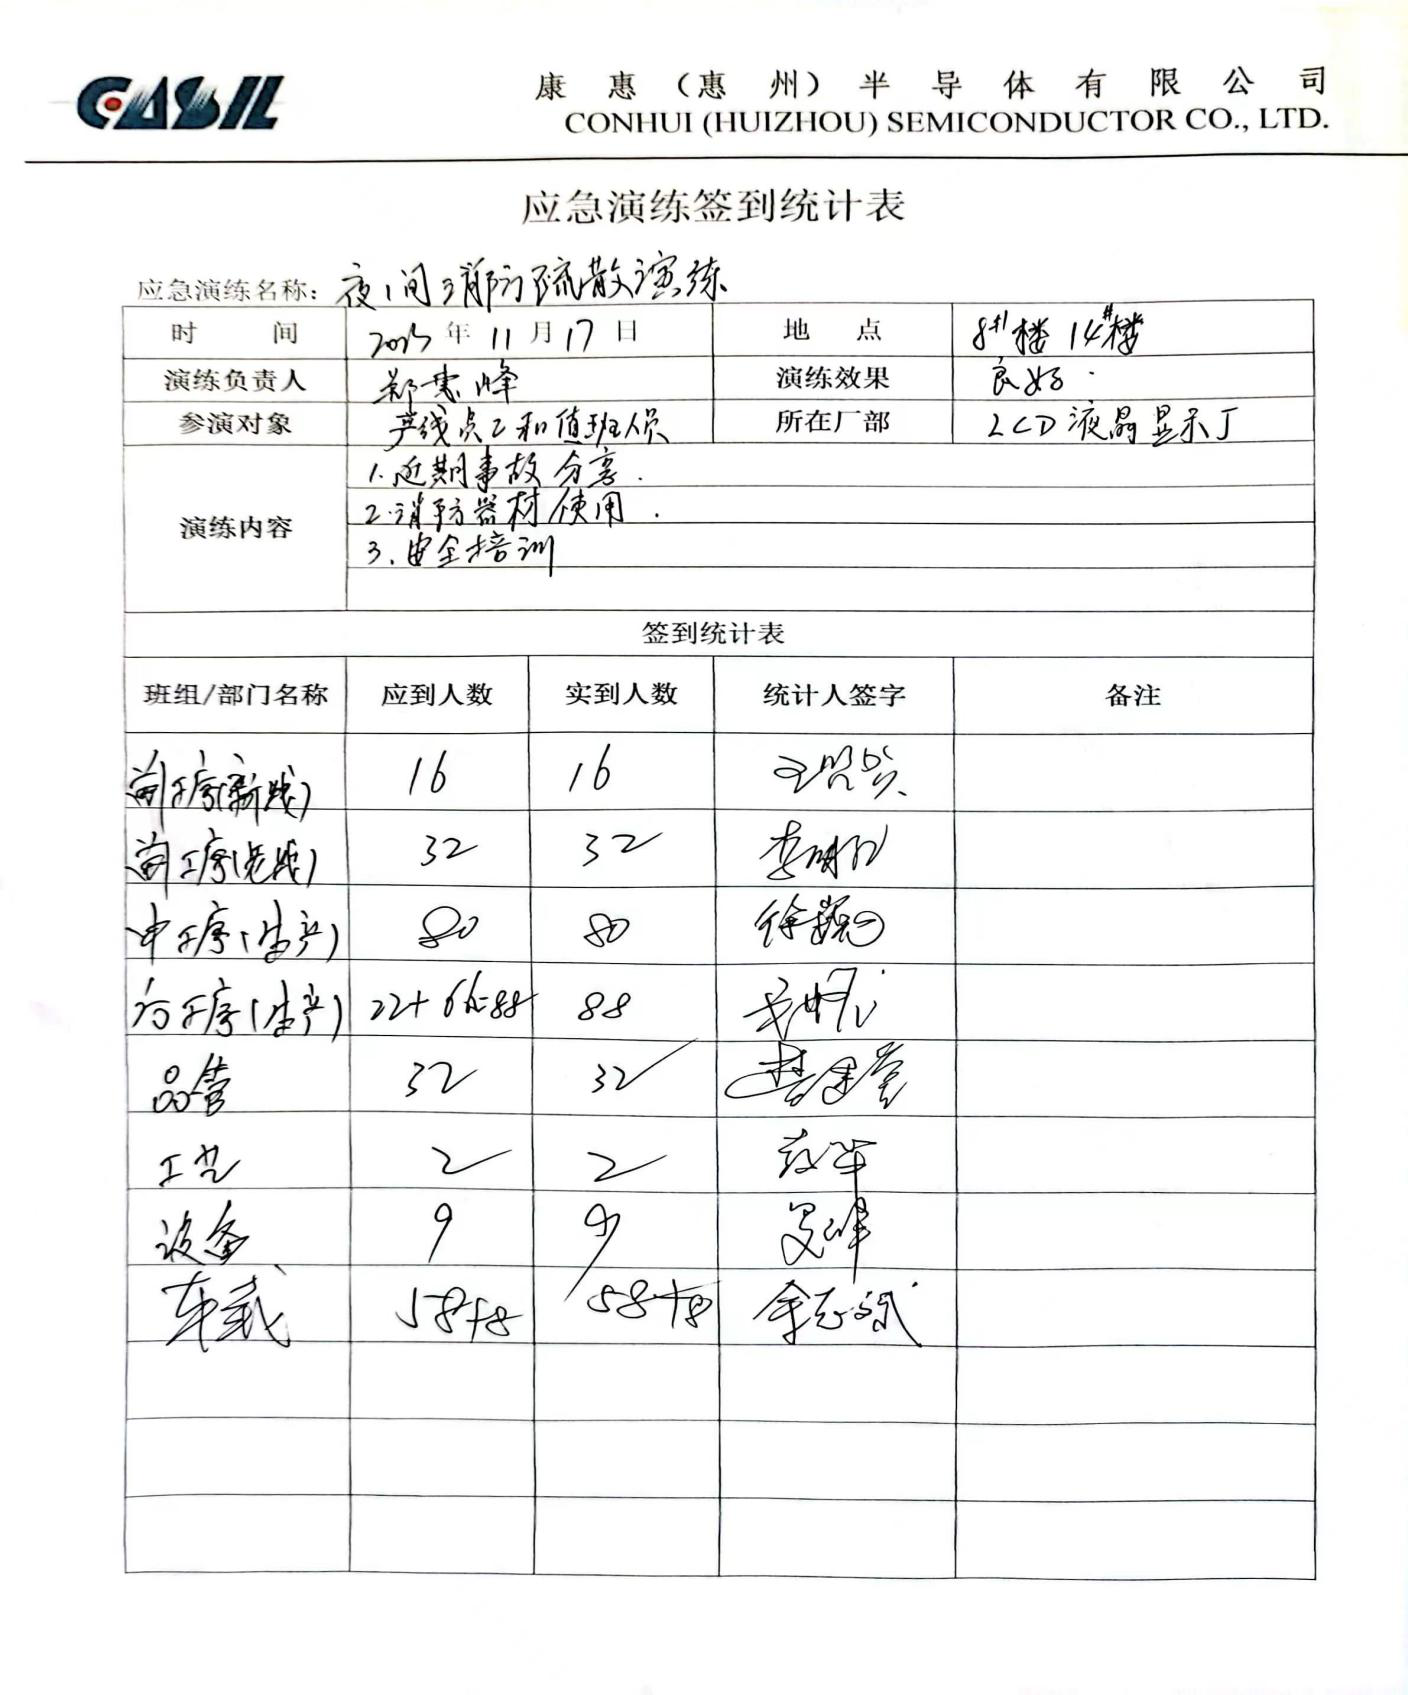 CASIL
康惠（惠州）半导体有限公司
CONHUI (HUIZHOU) SEMICONDUCTOR CO., LTD.
应急演练签到统计表
应急演练名称：夜间消防疏散演练
时 间 2025年11月17日 地 点 8#楼 14#楼
演练负责人 郑 峰 演练效果 良好.
参演对象 产线员工和值班人员 所在厂部 LCD液晶显示厂
演练内容 1.近期事故分享.
2.消防器材使用.
3.安全培训
签到统计表
班组/部门名称 应到人数 实到人数 统计人签字 备注
前工序(新线) 16 16
前工序(老线) 32 32 李明
中工序(生产) 80 80 徐
后工序(生产) 22+66=88 88
品管 32 32
工艺 2 2
设备 9 9
车载 58+8 58+8 余志斌